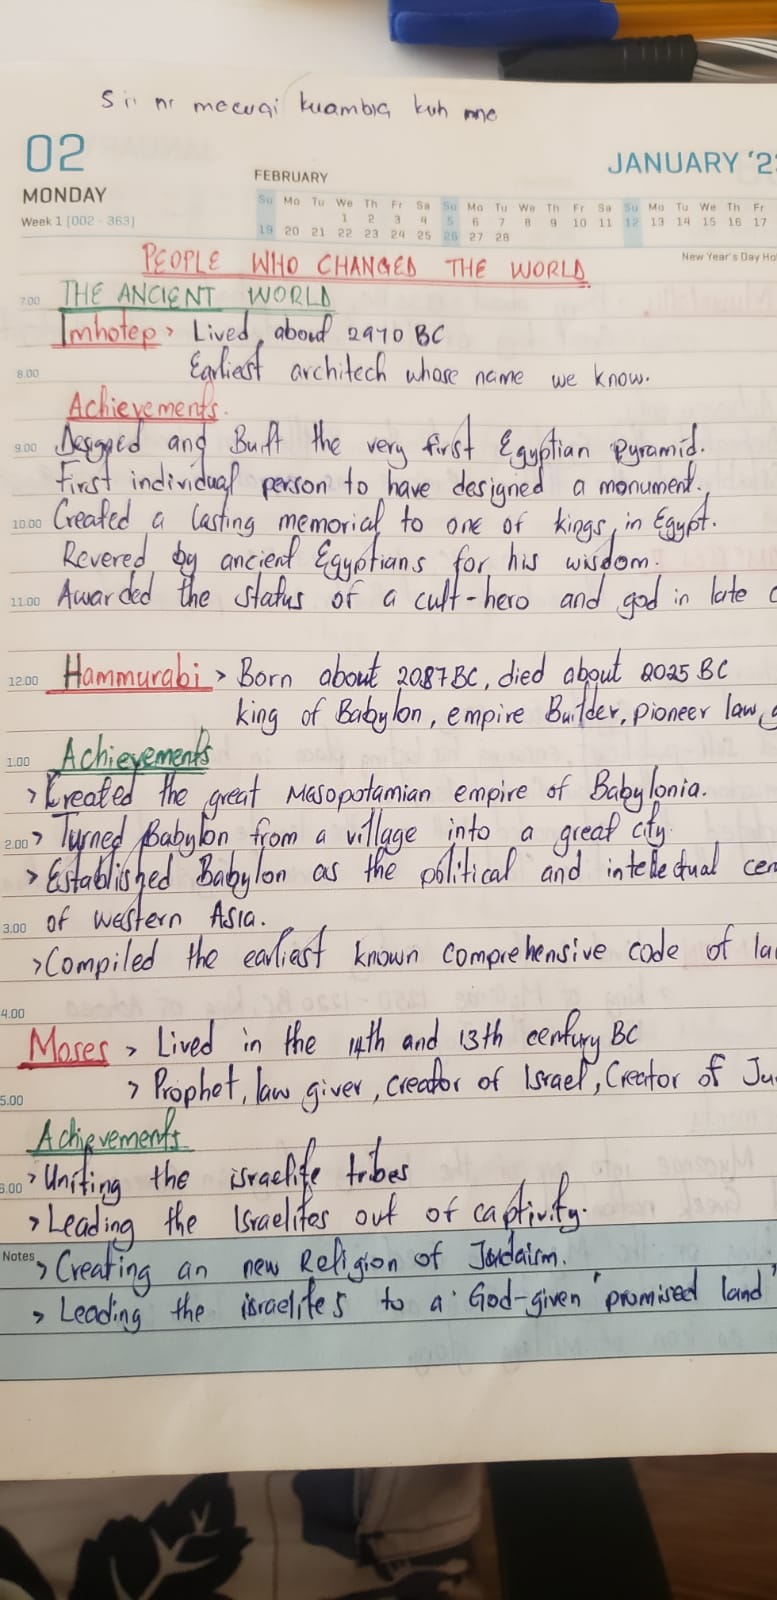 02
MONDAY
Week 1 (002 - 363)
FEBRUARY
JANUARY '2
Su Mo Tu We Th Fr Sa Su Mo Tu We Th Fr Sa Su Mo Tu We Th Fr
1 2 3 4 5 6 7 8 9 10 11 12 13 14 15 16 17
19 20 21 22 23 24 25 26 27 28
New Year's Day Ho
PEOPLE WHO CHANGED THE WORLD
7.00 THE ANCIENT WORLD
Imhotep > Lived about 2970 BC
8.00 Earliest architech whose name we know.
Achievements.
9.00 Designed and Built the very first Egyptian Pyramid.
First individual person to have designed a monument.
10.00 Created a lasting memorial to one of kings, in Egypt.
Revered by ancient Egyptians for his wisdom.
11.00 Awarded the status of a cult-hero and god in late
12.00 Hammurabi > Born about 2087 BC, died about 2025 BC
King of Babylon, empire Builder, pioneer law
1.00 Achievements
> Created the great Masopotamian empire of Babylonia.
2.00 > Turned Babylon from a village into a great city.
> Established Babylon as the political and intellectual cen
3.00 of western Asia.
> Compiled the earliest known comprehensive code of la
4.00
Moses > Lived in the 14th and 13th century BC
5.00 > Prophet, law giver, creator of Israel, Creator of Ju
Achievements
6.00 > Uniting the israelite tribes
> Leading the Israelites out of captivity.
Notes > Creating an new Religion of Judaism.
> Leading the israelites to a God-given 'promised land'